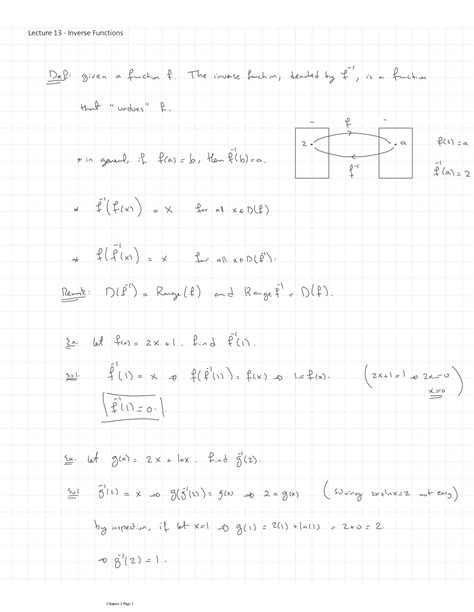 Lecture 13 - Inverse Functions
Def: given a function f. The inverse function, denoted by f⁻¹, is a function
that "undoes" f.
f
2 . . a
f(2)=a
f⁻¹
f⁻¹(a)=2
* in general, if f(a)=b, then f⁻¹(b)=a.
* f⁻¹(f(x)) = x for all x∈D(f)
* f(f⁻¹(x)) = x for all x∈D(f⁻¹).
Remark: D(f⁻¹) = Range(f) and Range f⁻¹ = D(f).
Ex. let f(x) = 2x+1. find f⁻¹(1).
sol. f⁻¹(1) = x ⇒ f(f⁻¹(1)) = f(x) ⇒ 1=f(x). (2x+1=1 ⇒ 2x=0
x=0)
f⁻¹(1)=0.
Ex. let g(x) = 2x + lnx. find g⁻¹(2).
Sol g⁻¹(2) = x ⇒ g(g⁻¹(2)) = g(x) ⇒ 2 = g(x) (Solving 2x+lnx=2 not easy)
by inspection, if let x=1 ⇒ g(1) = 2(1)+ln(1) = 2+0 = 2
⇒ g⁻¹(2) = 1.
Chapter 1 Page 1